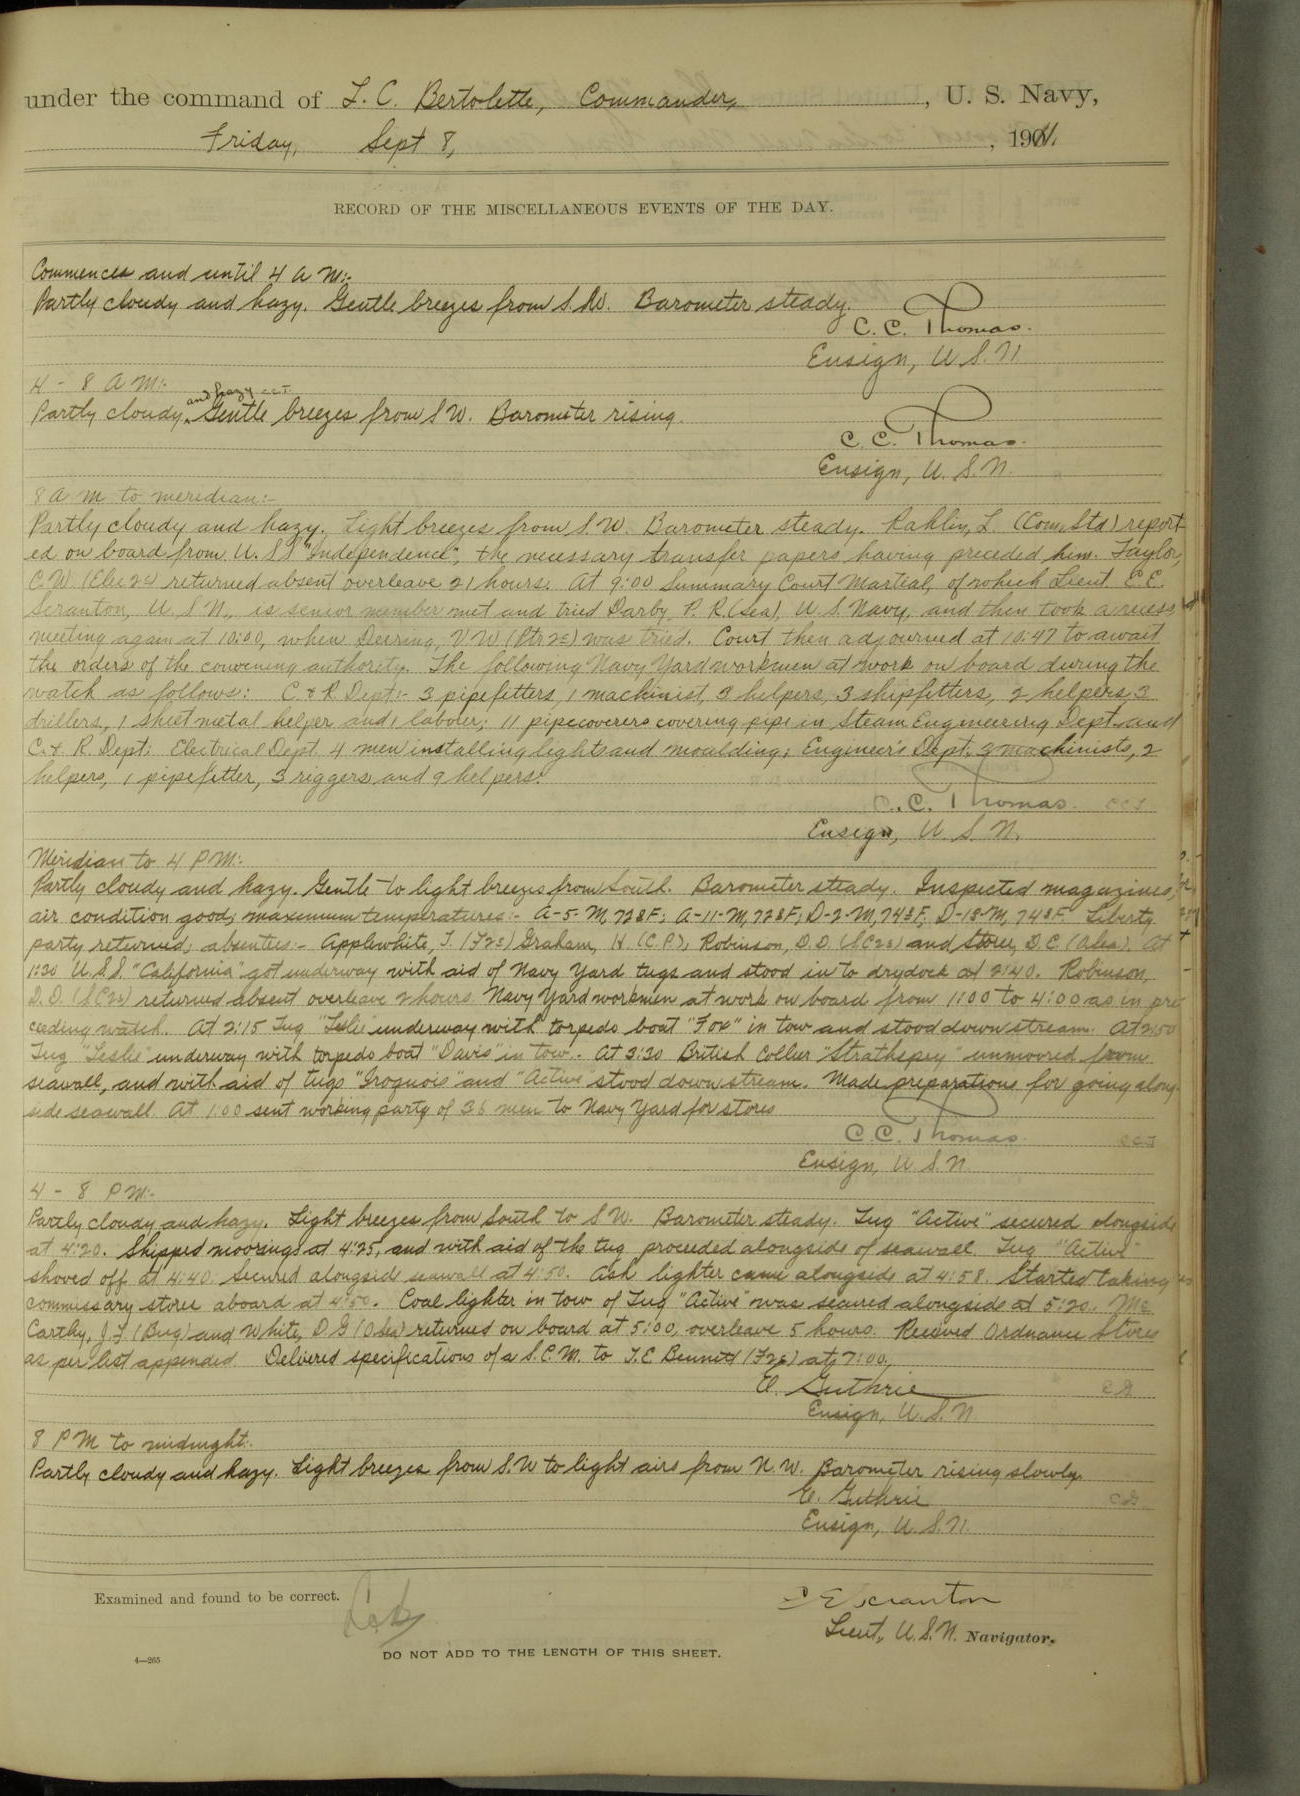 under the command of L. C. Bertolette, Commander, , U. S. Navy,
Friday, Sept 8, , 1911.
RECORD OF THE MISCELLANEOUS EVENTS OF THE DAY.
Commences and until 4 A M:-
Partly cloudy and hazy. Gentle breezes from S.W. Barometer steady.
C. C. Thomas.
Ensign, U S. N
4 - 8 A M:-
and hazy C.C.T.
Partly cloudy. Gentle breezes from S W. Barometer rising.
C. C. Thomas.
Ensign, U. S. N.
8 A M to meridian:-
Partly cloudy and hazy. Light breezes from S.W. Barometer steady. Rahlin, L. (Com. Std) report-
ed on board from U.S.S "Independence", the necessary transfer papers having preceded him. Taylor,
C.W. (Elec 2c) returned absent overleave 21 hours. At 9:00 Summary Court Martial, of which Lieut C.E.
Scranton, U.S.N., is senior member met and tried Darby, P. R. (Sea), U.S. Navy, and then took a recess,
meeting again at 10:00, when Deering, V W (Ptr 2c) was tried. Court then adjourned at 10:47 to await
the orders of the convening authority. The following Navy Yard workmen at work on board during the
watch as follows: C & R Dept:- 3 pipefitters, 1 machinist, 3 helpers, 3 shipfitters, 2 helpers, 3
drillers, 1 sheet metal helper and 1 laborer; 11 pipecoverers covering pipe in Steam Engineering Dept. and
C. & R. Dept. Electrical Dept. 4 men installing lights and moulding; Engineer's Dept. 9 machinists, 2
helpers, 1 pipefitter, 3 riggers and 9 helpers.
C. C. Thomas. CCT
Ensign, U. S. N.
Meridian to 4 P M:-
Partly cloudy and hazy. Gentle to light breezes from South. Barometer steady. Inspected magazines,
air condition good; maximum temperatures:- A-5-M, 72°F; A-11-M, 72°F; D-2-M, 74°F; D-13-M, 74°F. Liberty
party returned; absentees:- Applewhite, T. (F2c) Graham, H. (C.P.), Robinson, D.D. (SC2c) and Stone, D.C. (Osea). At
1:30 U.S.S. "California" got underway with aid of Navy Yard tugs and stood in to drydock at 2:40. Robinson,
D.D. (SC2c) returned absent overleave 2 hours. Navy Yard workmen at work on board from 1:00 to 4:00 as in pre-
ceeding watch. At 2:15 Tug "Leslie" underway with torpedo boat "Fox" in tow and stood down stream. At 2:50
Tug "Leslie" underway with torpedo boat "Davis" in tow. At 3:30 British Collier "Strathspey" unmoored from
seawall, and with aid of tugs "Iroquois" and "Active" stood down stream. Made preparations for going along-
side seawall. At 1:00 sent working party of 36 men to Navy Yard for stores
C. C. Thomas. CCT
Ensign, U. S. N.
4 - 8 P M:-
Partly cloudy and hazy. Light breezes from South to S W. Barometer steady. Tug "Active" secured alongside
at 4:20. Shipped moorings at 4:25, and with aid of the tug proceeded alongside of seawall. Tug "Active"
shoved off at 4:40. Secured alongside seawall at 4:50. Ash lighter came alongside at 4:58. Started taking
commissary stores aboard at 4:50. Coal lighter in tow of Tug "Active" was secured alongside at 5:20. Mc
Carthy, J.F. (Bug) and White, D G (Osea) returned on board at 5:00, overleave 5 hours. Received Ordnance Stores
as per list appended. Delivered specifications of a S.C.M. to T.E Bennett (F2c) at 7:00.
E. Guthrie
Ensign, U. S. N
8 P M to midnight:-
Partly cloudy and hazy. Light breezes from S.W to light airs from N. W. Barometer rising slowly.
E. Guthrie
Ensign, U. S. N.
Examined and found to be correct.
C E Scranton
Lieut, U. S. N. Navigator.
DO NOT ADD TO THE LENGTH OF THIS SHEET.
4—265